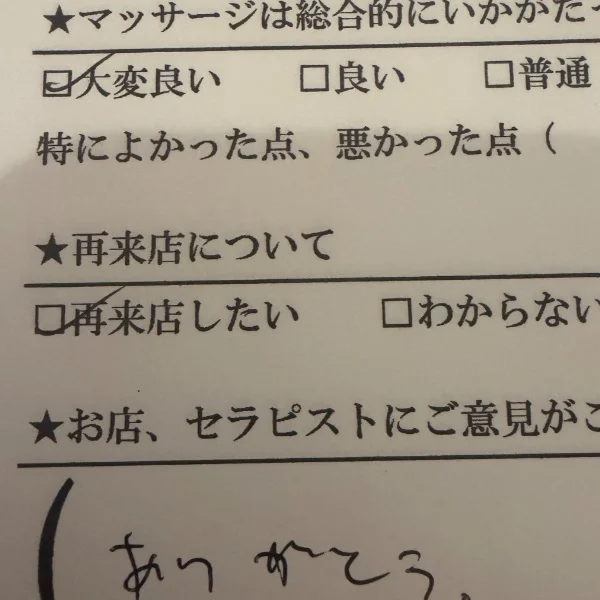 ★マッサージは総合的にいかがた
☑大変良い □良い □普通
特によかった点、悪かった点（
★再来店について
☑再来店したい □わからない
★お店、セラピストにご意見がご
（ありがとう。